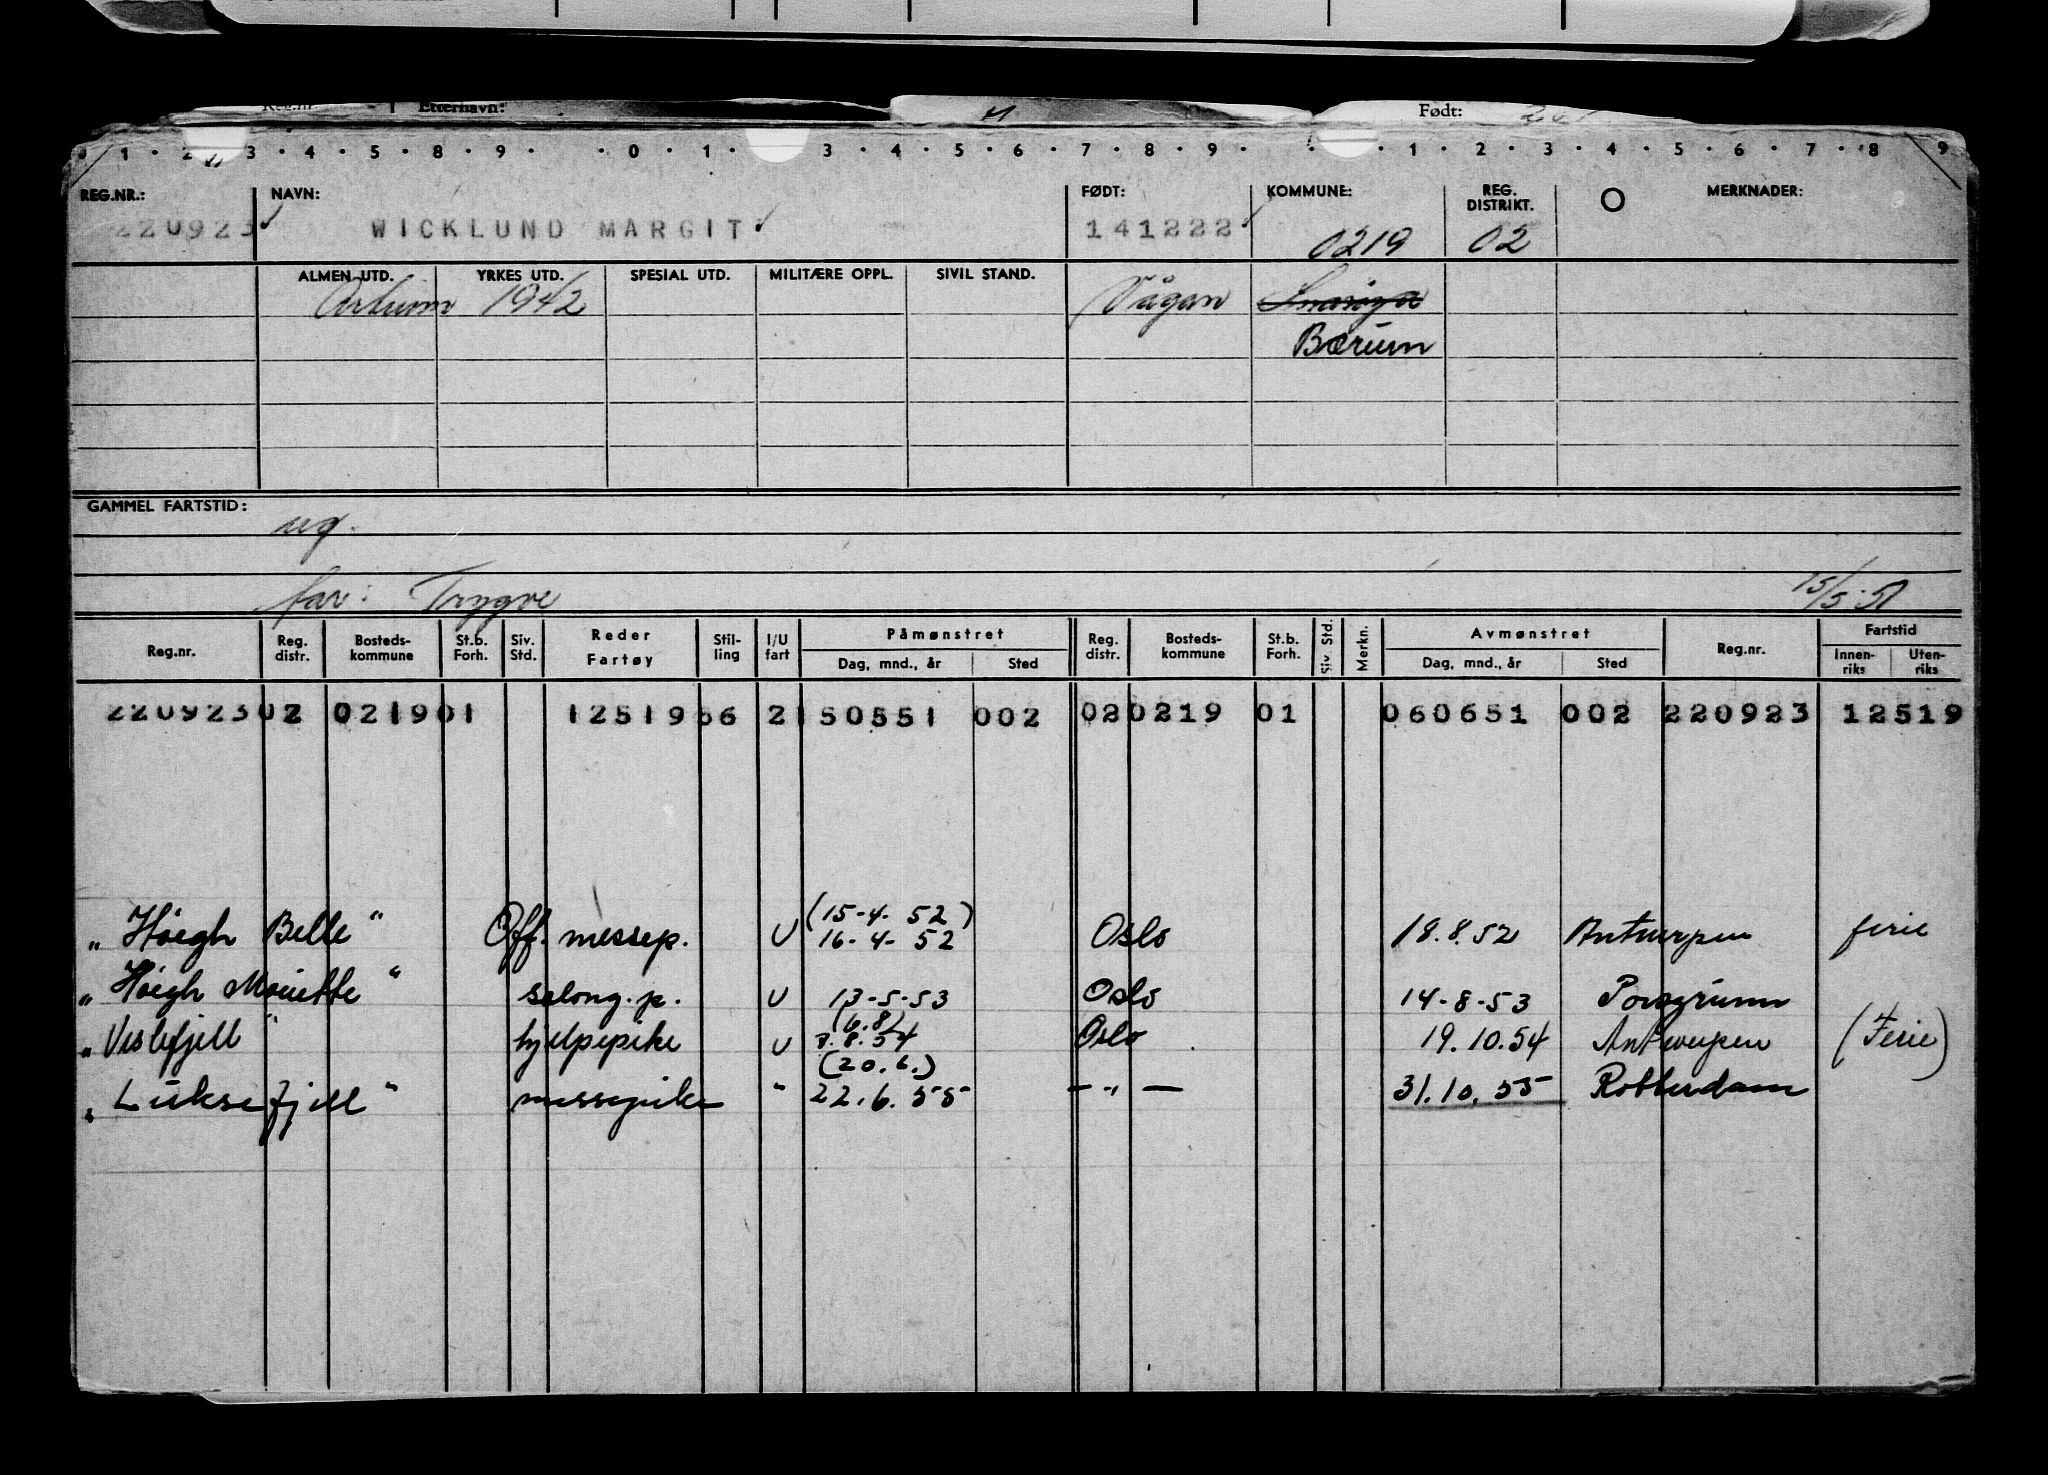 Reg.nr Etternavn: Født:
1 2 3 4 5 8 9 0 1 3 4 5 6 7 8 9 1 2 3 4 5 6 7 8 9
REG.NR.: NAVN: FØDT: KOMMUNE: REG. DISTRIKT. MERKNADER:
220923 WICKLUND MARGIT 141222 0219 02
ALMEN UTD. YRKES UTD. SPESIAL UTD. MILITÆRE OPPL. SIVIL STAND.
1942 Vågan Snarøya
Bærum
GAMMEL FARTSTID:
far: Trygve 15/5-51
Reg.nr. Reg. distr. Bosteds-kommune St.b. Forh. Siv. Std. Reder Fartøy Stil-ling I/U fart Påmønstret Dag, mnd., år Sted Reg. distr. Bosteds-kommune St.b. Forh. Siv. Std. Merkn. Avmønstret Dag, mnd., år Sted Reg.nr. Fartstid Innen-riks Uten-riks
220923 02 0219 01 12519 66 2 150551 002 02 0219 01 060651 002 220923 12519
(15-4-52)
„Höegh Belle" Off. messep. U 16-4-52 Oslo 18.8.52 Antwerpen ferie
„Höegh Mouette" salong.p. U 13-5-53 Oslo 14-8-53 Porsgrunn
(6.8)
„Veslefjell" hjelpepike U 7.8.54 Oslo 19.10.54 Antwerpen (Ferie)
(20.6.)
„Luksefjell" messepike " 22.6.55 — " — 31.10.55 Rotterdam